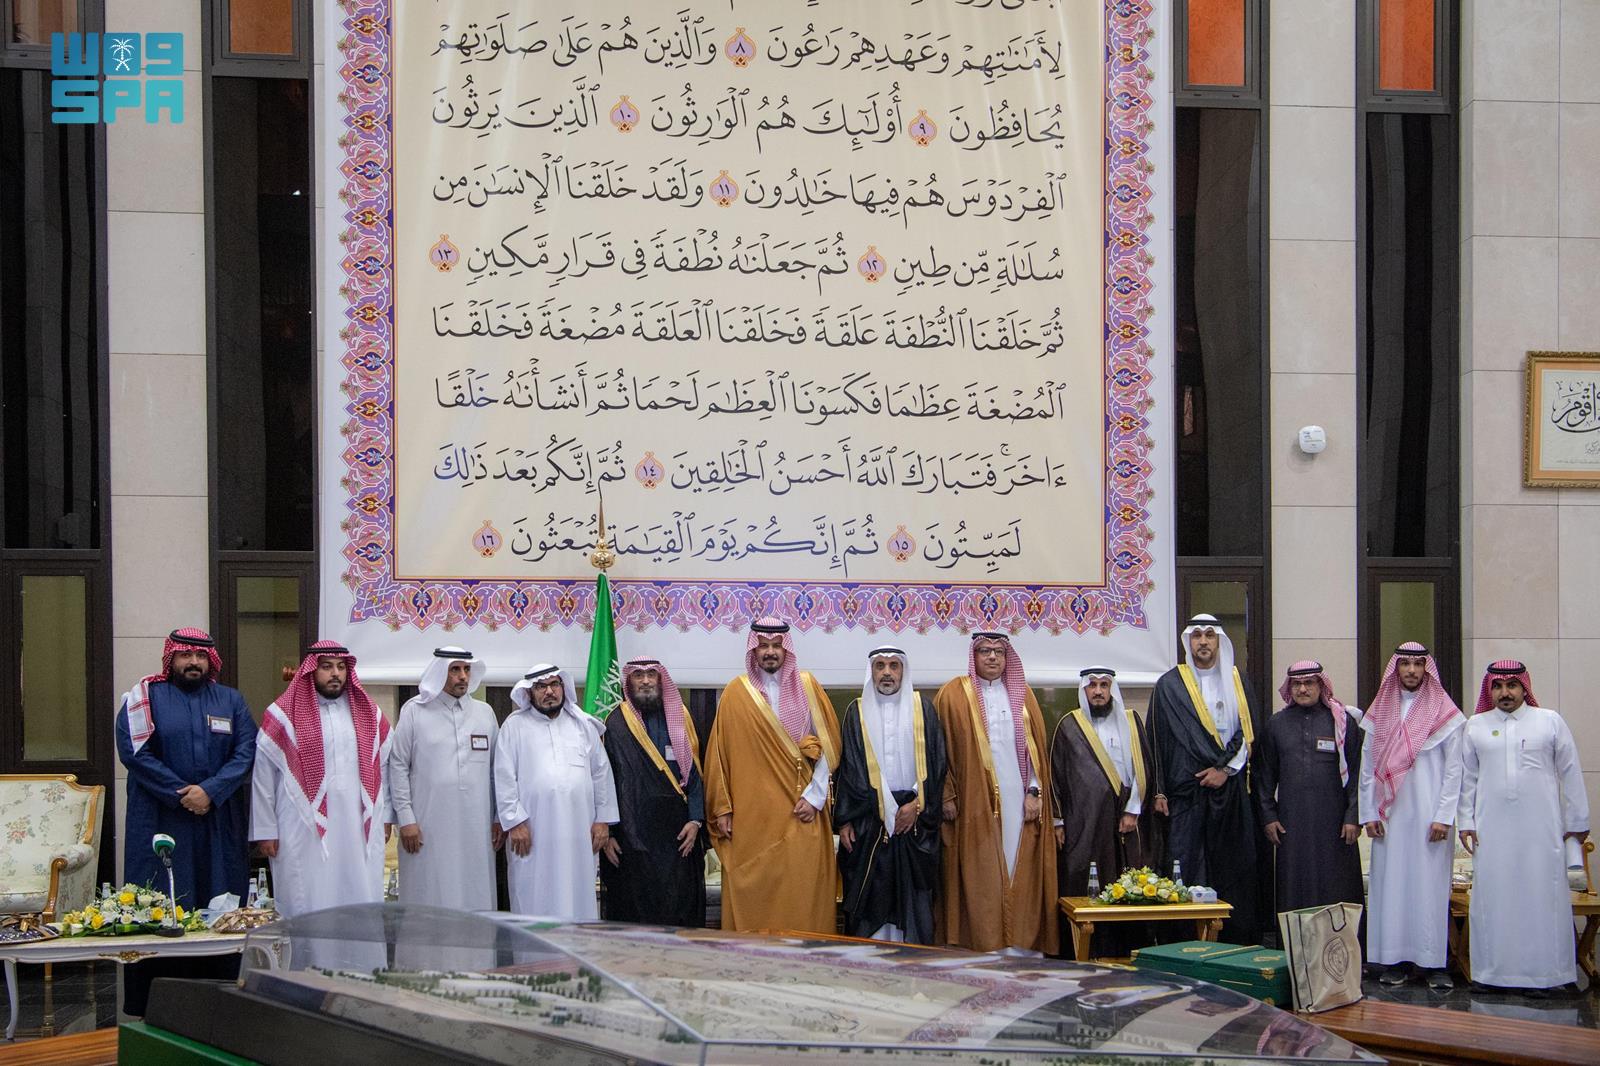 واس
SPA
لِأَمَٰنَٰتِهِمْ وَعَهْدِهِمْ رَٰعُونَ ٨ وَٱلَّذِينَ هُمْ عَلَىٰ صَلَوَٰتِهِمْ
يُحَافِظُونَ ٩ أُوْلَٰٓئِكَ هُمُ ٱلْوَٰرِثُونَ ١٠ ٱلَّذِينَ يَرِثُونَ
ٱلْفِرْدَوْسَ هُمْ فِيهَا خَٰلِدُونَ ١١ وَلَقَدْ خَلَقْنَا ٱلْإِنسَٰنَ مِن
سُلَٰلَةٍ مِّن طِينٍ ١٢ ثُمَّ جَعَلْنَٰهُ نُطْفَةً فِي قَرَارٍ مَّكِينٍ ١٣
ثُمَّ خَلَقْنَا ٱلنُّطْفَةَ عَلَقَةً فَخَلَقْنَا ٱلْعَلَقَةَ مُضْغَةً فَخَلَقْنَا
ٱلْمُضْغَةَ عِظَٰمًا فَكَسَوْنَا ٱلْعِظَٰمَ لَحْمًا ثُمَّ أَنشَأْنَٰهُ خَلْقًا
ءَاخَرَۚ فَتَبَارَكَ ٱللَّهُ أَحْسَنُ ٱلْخَٰلِقِينَ ١٤ ثُمَّ إِنَّكُم بَعْدَ ذَٰلِكَ
لَمَيِّتُونَ ١٥ ثُمَّ إِنَّكُمْ يَوْمَ ٱلْقِيَٰمَةِ تُبْعَثُونَ ١٦
أَقْوَمُ